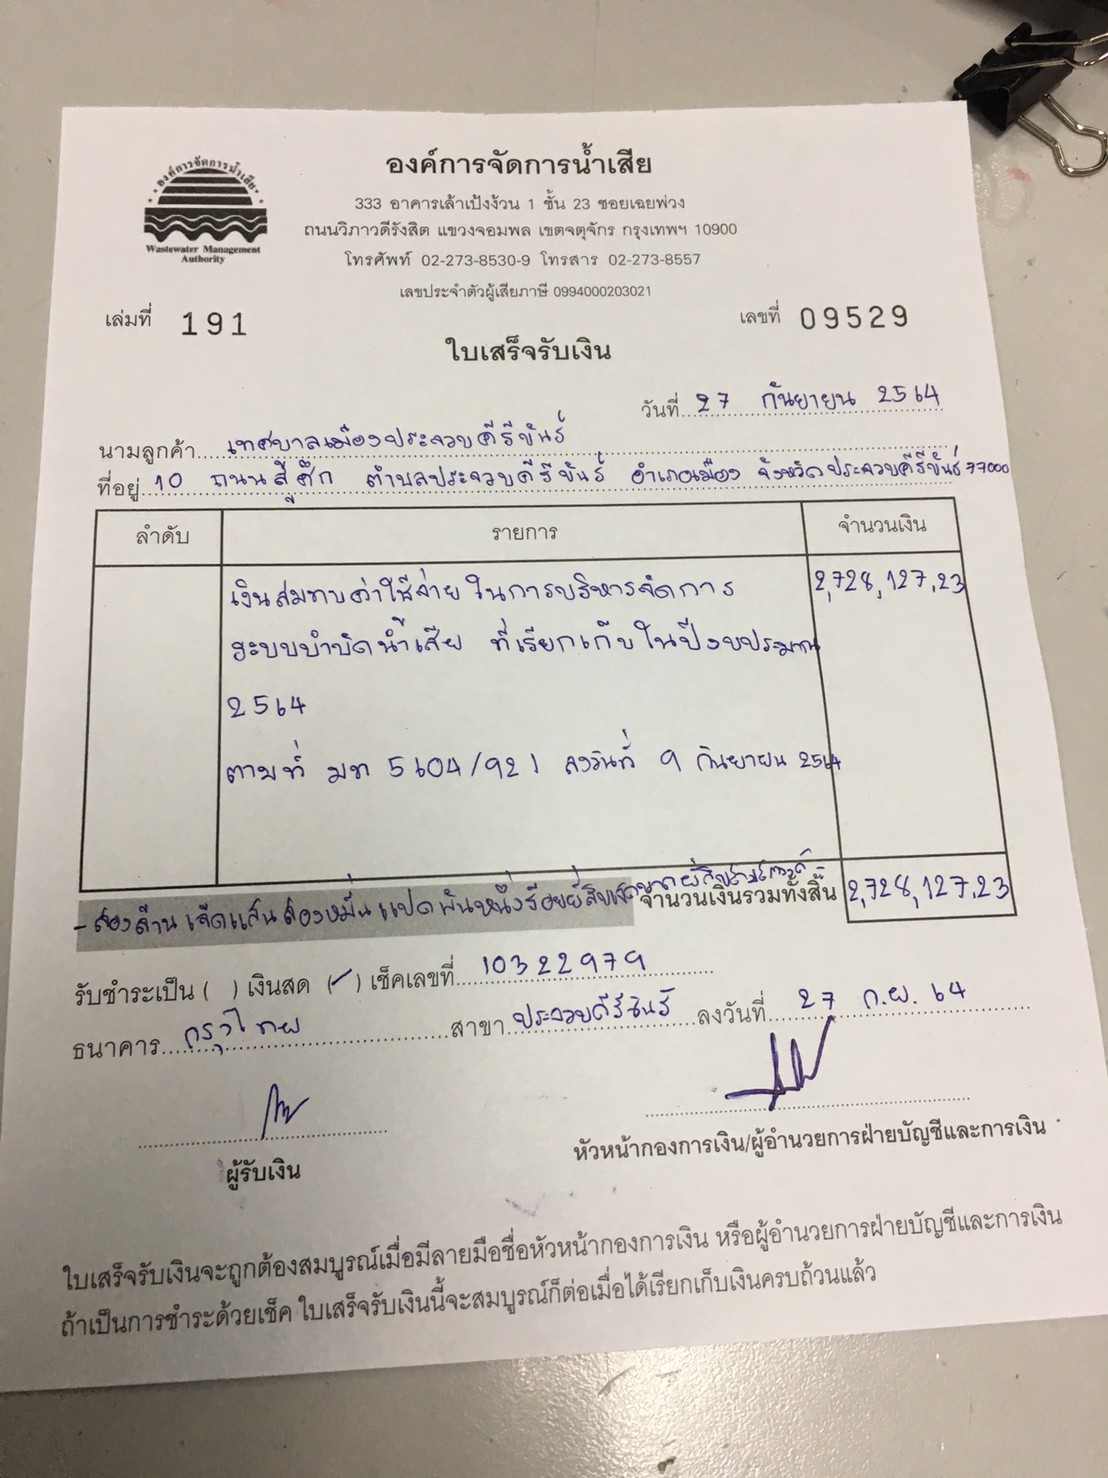 องค์การจัดการน้ำเสีย
องค์การจัดการน้ำเสีย
Wastewater Management
Authority
333 อาคารเล้าเป้งง้วน 1 ชั้น 23 ซอยเฉยพ่วง
ถนนวิภาวดีรังสิต แขวงจอมพล เขตจตุจักร กรุงเทพฯ 10900
โทรศัพท์ 02-273-8530-9 โทรสาร 02-273-8557
เลขประจำตัวผู้เสียภาษี 0994000203021
เล่มที่ 191 เลขที่ 09529
ใบเสร็จรับเงิน
วันที่ 27 กันยายน 2564
นามลูกค้า เทศบาลเมืองประจวบคีรีขันธ์
ที่อยู่ 10 ถนนสู้ศึก ตำบลประจวบคีรีขันธ์ อำเภอเมือง จังหวัดประจวบคีรีขันธ์ 77000
ลำดับ รายการ จำนวนเงิน
เงินสมทบค่าใช้จ่ายในการบริหารจัดการ 2,728,127.23
ระบบบำบัดน้ำเสีย ที่เรียกเก็บในปีงบประมาณ
2564
ตามที่ มท 5604/921 ลงวันที่ 9 กันยายน 2564
-สองล้านเจ็ดแสนสองหมื่นแปดพันหนึ่งร้อยยี่สิบเจ็ดบาทยี่สิบสามสตางค์- จำนวนเงินรวมทั้งสิ้น 2,728,127.23
รับชำระเป็น ( ) เงินสด (✓) เช็คเลขที่ 10322979
ธนาคาร กรุงไทย สาขา ประจวบคีรีขันธ์ ลงวันที่ 27 ก.ย. 64
ผู้รับเงิน หัวหน้ากองการเงิน/ผู้อำนวยการฝ่ายบัญชีและการเงิน
ใบเสร็จรับเงินจะถูกต้องสมบูรณ์เมื่อมีลายมือชื่อหัวหน้ากองการเงิน หรือผู้อำนวยการฝ่ายบัญชีและการเงิน
ถ้าเป็นการชำระด้วยเช็ค ใบเสร็จรับเงินนี้จะสมบูรณ์ก็ต่อเมื่อได้เรียกเก็บเงินครบถ้วนแล้ว